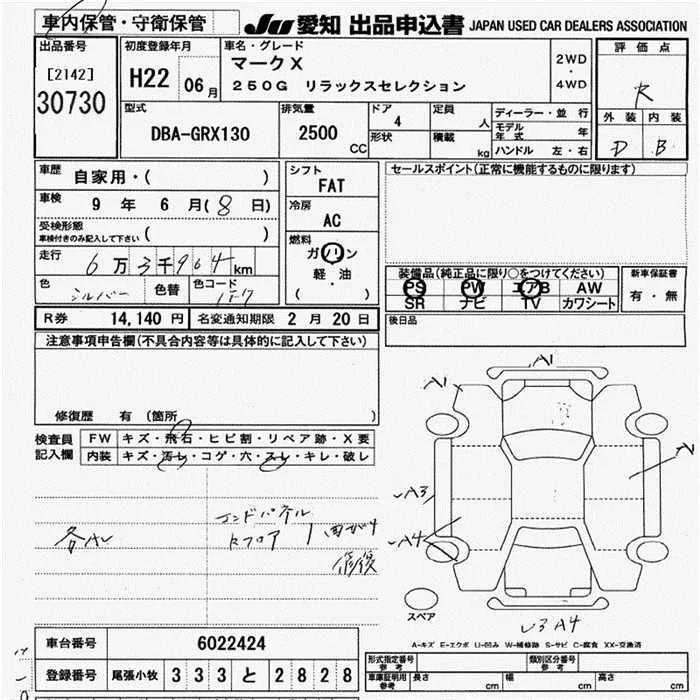 車内保管・守衛保管
JU 愛知 出品申込書 JAPAN USED CAR DEALERS ASSOCIATION
出品番号
[2142]
30730
初度登録年月
H22 06月
車名・グレード
マークX
250G リラックスセレクション
2WD
・
4WD
評価点
R
外装 内装
D B
型式
DBA-GRX130
排気量
2500
CC
ドア
4
形状
定員
人
積載
kg
ディーラー・並行
モデル年式 年
ハンドル 左・右
車歴
自家用・( )
車検
9 年 6 月(8 日)
受検形態
車検付きのみ記入して下さい ( )
走行
6万3千964km
色
シルバー
色替
色コード
1F7
シフト
FAT
冷房
AC
燃料
ガソリン
軽・油
( )
セールスポイント(正常に機能するものに限ります)
装備品(純正品に限り○をつけてください)
PS PW エアB AW
SR ナビ TV カワシート
新車保証書
有・無
後日品
R券 14,140 円 名変通知期限 2 月 20 日
注意事項申告欄(不具合内容等は具体的に記入して下さい)
修復歴 有 (箇所 )
検査員
記入欄
FW キズ・飛石・ヒビ割・リペア跡・X要
内装 キズ・汚レ・コゲ・穴・スレ・キレ・破レ
各AU
エンドパネル
Rフロア
曲がり
修復
A1
A1
A
A3
A4
U3 A4
スペア
A-キズ E-エクボ U-凹み W-補修跡 S-サビ C-腐食 XX-交換済
車台番号 6022424
登録番号 尾張小牧 333 と 2828
形式指定番号
参考
類別区分番号
参考
車庫証明用
参考
長さ cm 幅 cm 高さ cm